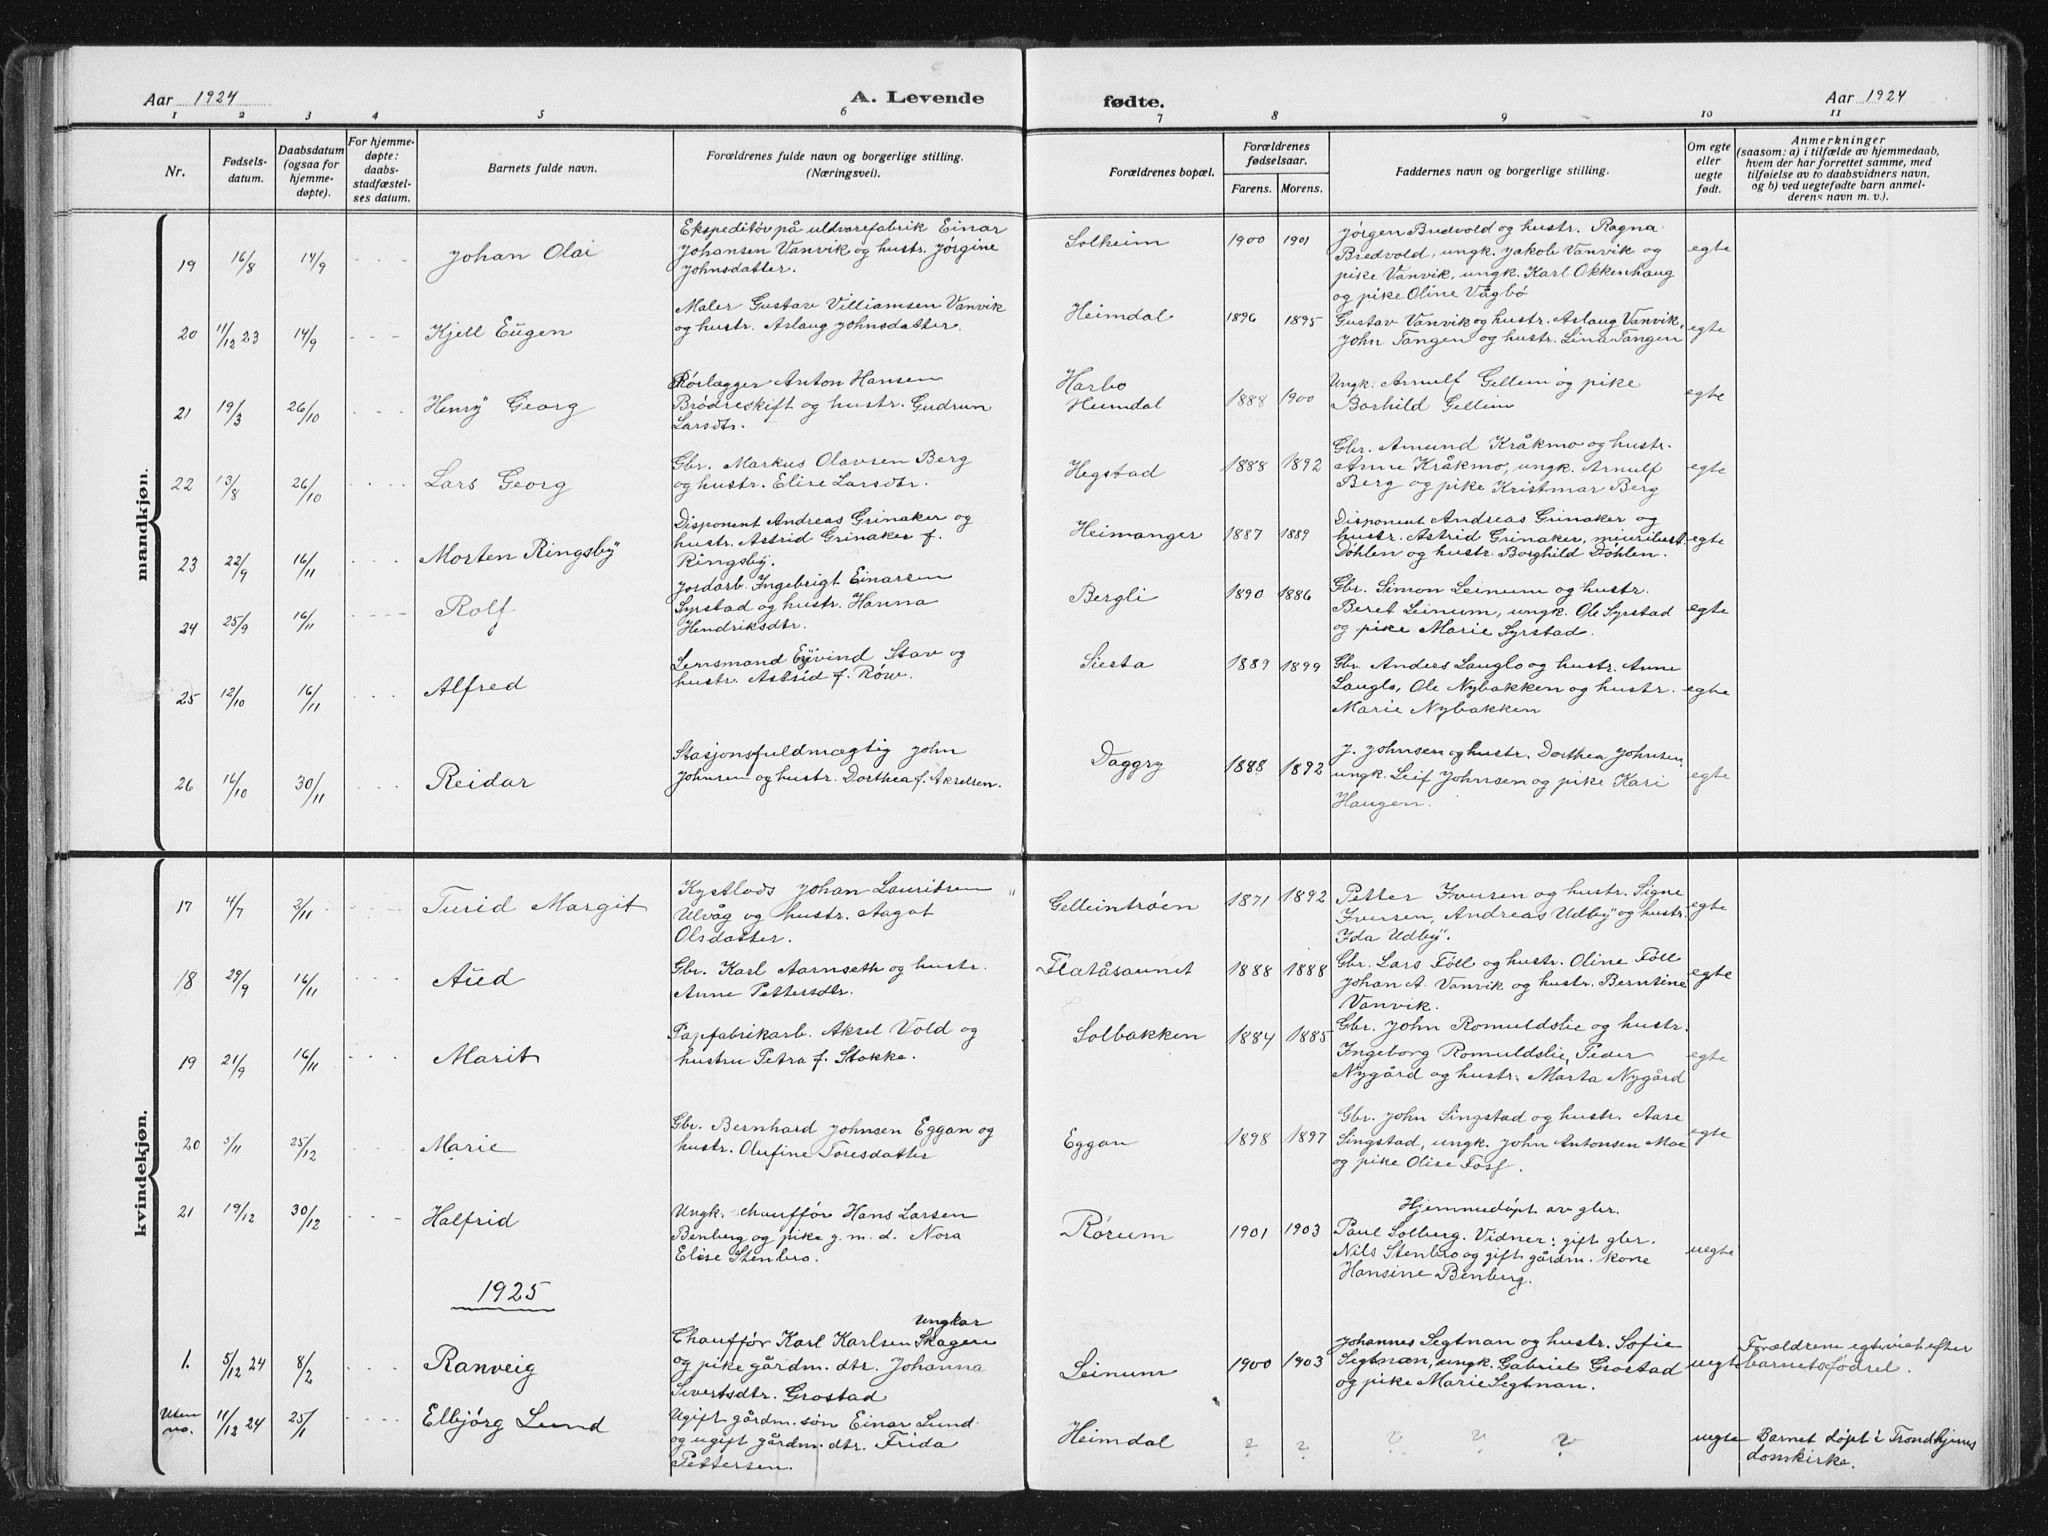 Aar 1924
A. Levende
fødte.
Aar 1924
1 2 3 4 5 6 7 8 9 10 11
Nr.
Fødsels-
datum.
Daabsdatum
(ogsaa for
hjemme-
døpte).
For hjemme-
døpte:
daabs-
stadfæstel-
ses datum.
Barnets fulde navn.
Forældrenes fulde navn og borgerlige stilling.
(Næringsvei).
Forældrenes bopæl.
Forældrenes
fødselsaar.
Farens. Morens.
Faddernes navn og borgerlige stilling.
Om egte
eller
uegte
født.
Anmerkninger
(saasom: a) i tilfælde av hjemmedaab,
hvem der har forrettet samme, med
tilføielse av to daabsvidners navn,
og b) ved uegtefødte barn anmel-
derens navn m. v.).
mandkjøn.
19 16/8 14/9 Johan Olai
Ekspeditør på uldvarefabrik Einar
Johansen Vanvik og hustr. Jørgine
Johnsdatter.
Solheim 1900 1901
Jørgen Bredvold og hustr. Ragna
Bredvold, ungk. Jakob Vanvik og
pike Vanvik, ungk. Karl Okkenhaug
og pike Oline Vågbø
egte
20 11/12 23 14/9 Kjell Eugen
Maler Gustav Villiamsen Vanvik
og hustr. Aslaug Johnsdatter.
Heimdal 1896 1895
Gustav Vanvik og hustr. Aslaug Vanvik,
John Tangen og hustr. Lina Tangen
egte
21 19/3 26/10 Henry Georg
Rørlægger Anton Hansen
Brødreskift og hustr. Gudrun
Larsdtr.
Harbo
Heimdal 1888 1900
Ungk. Arnulf Gellein og pike
Borhild Gellein
egte
22 13/8 26/10 Lars Georg
Gbr. Markus Olavsen Berg
og hustr. Elise Larsdtr.
Hegstad 1888 1892
Gbr. Amund Kråkmo og hustr.
Anne Kråkmo, ungk. Arnulf
Berg og pike Kristmar Berg
egte
23 22/9 16/11 Morten Ringsby
Disponent Andreas Grinaker og
hustr. Astrid Grinaker f.
Ringsby.
Heimanger 1887 1889
Disponent Andreas Grinaker og
hustr. Astrid Grinaker, meieribest.
Døhlen og hustr. Borghild Døhlen.
egte
24 25/9 16/11 Rolf
Jordarb. Ingebrigt Einarsen
Syrstad og hustr. Hanna
Hendriksdtr.
Bergli 1890 1886
Gbr. Simon Leinum og hustr.
Beret Leinum, ungk. Ole Syrstad
og pike Marie Syrstad.
egte
25 12/10 16/11 Alfred
Lensmand Eyvind Stav og
hustr. Astrid f. Røw.
Siesta 1889 1899
Gbr. Anders Langlo og hustr. Anne
Langlo, Ole Nybakken og hustr.
Marie Nybakken
egte
26 16/10 30/11 Reidar
Stasjonsfuldmægtig John
Johnsen og hustr. Dorthea f. Akselsen.
Daggry 1888 1892
J. Johnsen og hustr. Dorthea Johnsen,
ungk. Leif Johnsen og pike Kari
Haugen.
egte
kvindekjøn.
17 4/7 2/11 Turid Margit
Johan Lauritsen
Ulvåg og hustr. Aagot
Olsdatter.
Gelleintrøen 1871 1892
Petter Iversen og hustr. Signe
Iversen, Andreas Udby og hustr.
Ida Udby.
egte
18 29/9 16/11 Aud
Gbr. Karl Aarnseth og hustr.
Anne Pettersdtr.
Flatåsaunet 1888 1888
Gbr. Lars Föll og hustr. Oline Föll
Johan A. Vanvik og hustr. Berntine
Vanvik.
egte
19 21/9 16/11 Marit
Papfabrikarb. Aksel Vold og
hustru Petra f. Stokke.
Solbakken 1884 1885
Gbr. John Romuldslie og hustr.
Ingeborg Romuldslie, Peder
Nygård og hustr. Marta Nygård
egte
20 3/11 25/12 Marie
Gbr. Bernhard Johnsen Eggan og
hustr. Olufine Toresdatter
Eggan 1898 1897
Gbr. John Singstad og hustr. Aase
Singstad, ungk. John Antonsen Moe
og pike Olise
egte
21 19/12 30/12 Halfrid
Ungk. chauffør Hans Larsen
Benberg og pike g. m. d. Nora
Elise Stenbro.
Rørum 1901 1903
Hjemmedøpt av gbr.
Paul Solberg. Vidner: gift gbr.
Nils Stenbro og gift gårdm. kone
Hansine Benberg.
uegte
1925
1. 5/12 24 8/2 Ranveig
Ungkar
Chauffør Karl Karlsen Skagen
og pike gårdm. dtr. Johanna
Sivertsdtr. Grostad
Leinum 1900 1903
Johannes Segtnan og hustr. Sofie
Segtnan, ungk. Gabriel Grostad
og pike Marie Segtnan.
uegte
Forældrene egteviet efter
barnets fødsel.
Uten
no. 11/12 24 25/1 Elbjørg Lund
Ugift gårdm. søn Einar Lund
og ugift gårdm. dtr. Frida
Pettersen.
Heimdal ? ? ? ? ?
uegte
Barnet døpt i Trondhjems
domkirke.